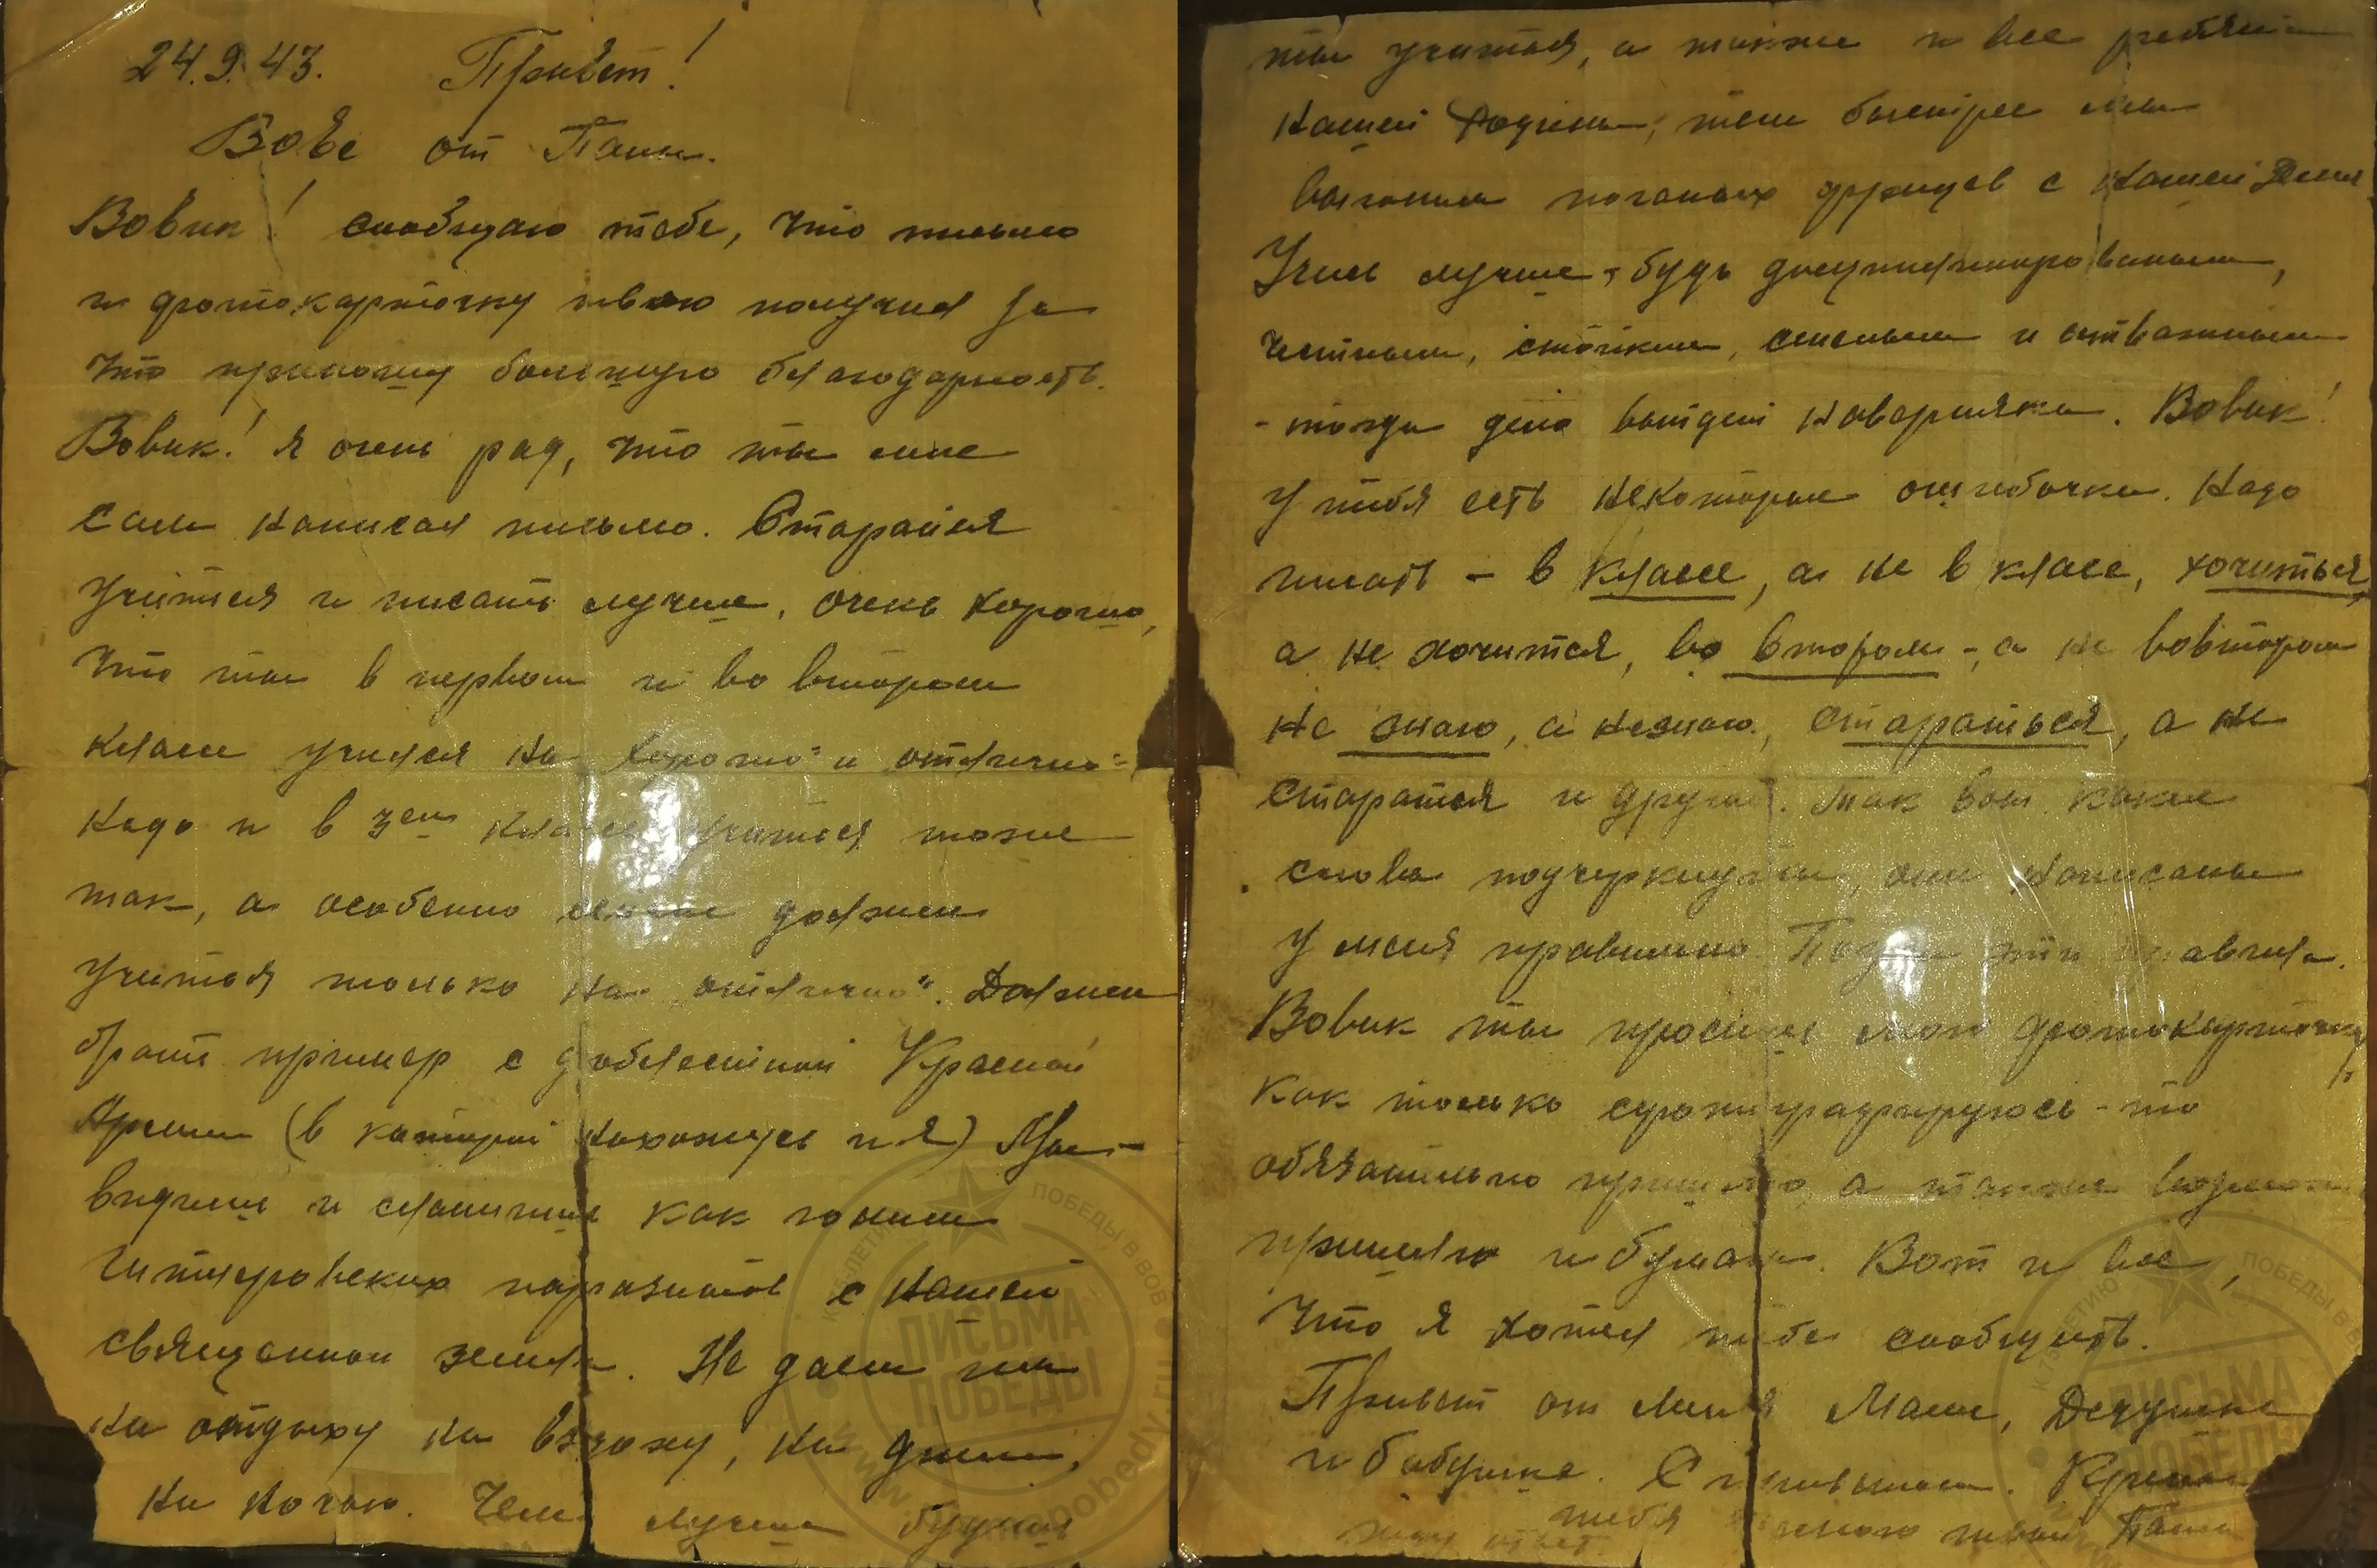 24.9.43. Привет!
Вове от Папы.
Вовик! сообщаю тебе, что письмо
и фотокарточку твою получил за
что приношу большую благодарность.
Вовик! Я очень рад, что ты мне
сам написал письмо. Старайся
учится и писать лучше. очень хорошо,
что ты в первом и во втором
классе учился на хорошо" и отлично"
Надо и в 3ем классе учится тоже
так, а особенно должен
учиться только на „отлично". Должен
брать пример с доблестной Красной
Армии (в которой нахожусь и я)
видишь и слышишь как гоним
гитлеровских паразитов с нашей
священной земли. Не даем им
ни отдыху ни вздоху, ни днем,
ни ночью. Чем лучше будешь
ты учиться, а также и все ребята
нашей Родины, тем быстрее мы
выгоним поганых фрицев с нашей земли
Учись лучше, будь дисциплинированым,
честным, стойким, смелым и отважным
- тогда дело выйдет наверняка. Вовик!
У тебя есть некоторые ошибочки. Надо
писать - в классе, а не в класе, хочиться,
а не хочится, во втором -, а не вовтором
не знаю, а незнаю, стараться, а не
старатся и другие. Так вот какие
слова подчеркнуты, они написаны
у меня правильно. эти правила.
Вовик ты просишь мою фотокарточку
как только сфотографируюсь - то
обязательно пришлю, а также
пришлю и бумаги. Вот и все,
что я хотел тебе сообщить.
Привет от меня Маме, Дедушке
и бабушке. С приветом. Крепко
тебя твой Папа
жду ответ.
ПИСЬМА
ПОБЕДЫ
К 75-ЛЕТИЮ ПОБЕДЫ В ВОВ
ПИСЬМА
ПОБЕДЫ